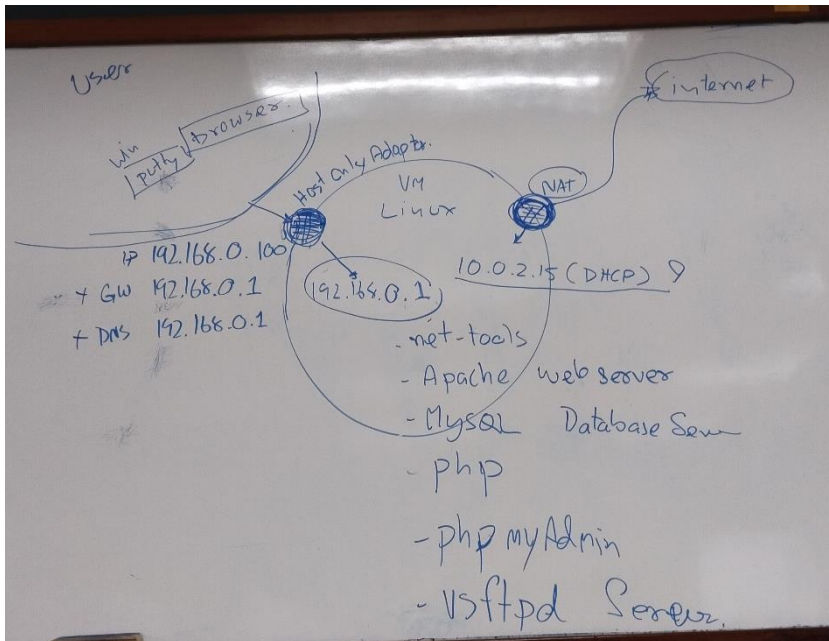 User
internet
win
putty
browser.
Host Only Adapter.
VM
Linux
NAT
IP 192.168.0.100
+ GW 192.168.0.1
+ DNS 192.168.0.1
192.168.0.1
10.0.2.15 (DHCP)
- net-tools
- Apache web server
- MySQL Database Server
- php
- php myAdmin
- vsftpd Server.